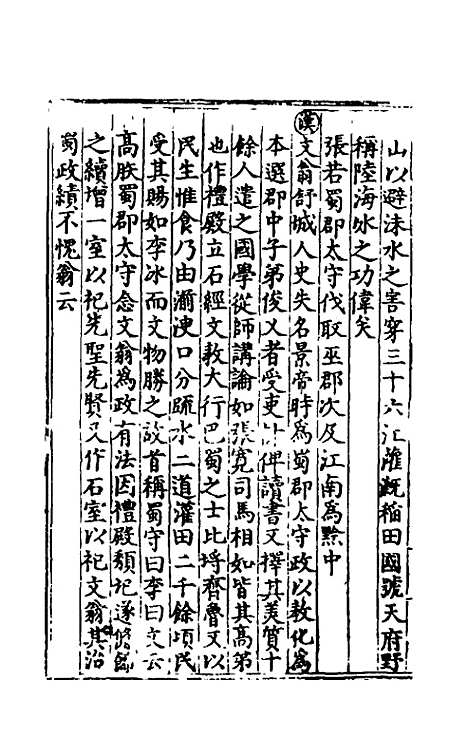 山以避沫水之害穿三十六江灌溉稲田國號天府野
稱陸海冰之功偉矣
張若蜀郡太守伐取巫郡次及江南為黔中
漢
文翁舒城人史失名景帝時為蜀郡太守政以教化為
本選郡中子弟俊乂者受吏 俾讀書又擇其美質十
餘人遣之國學從師講論如張寛司馬相如皆其高第
也作禮殿立石經文教大行巴蜀之士比埒齊魯又以
民生惟食乃由湔洩口分疏水二道灌田二千餘頃民
受其賜如李冰而文物勝之故首稱蜀守曰李曰文云
高朕蜀郡太守念文翁為政有法因禮殿頽圮遂修飾
之續增一室以祀先聖先賢又作石室以祀文翁其治
蜀政績不愧翁云